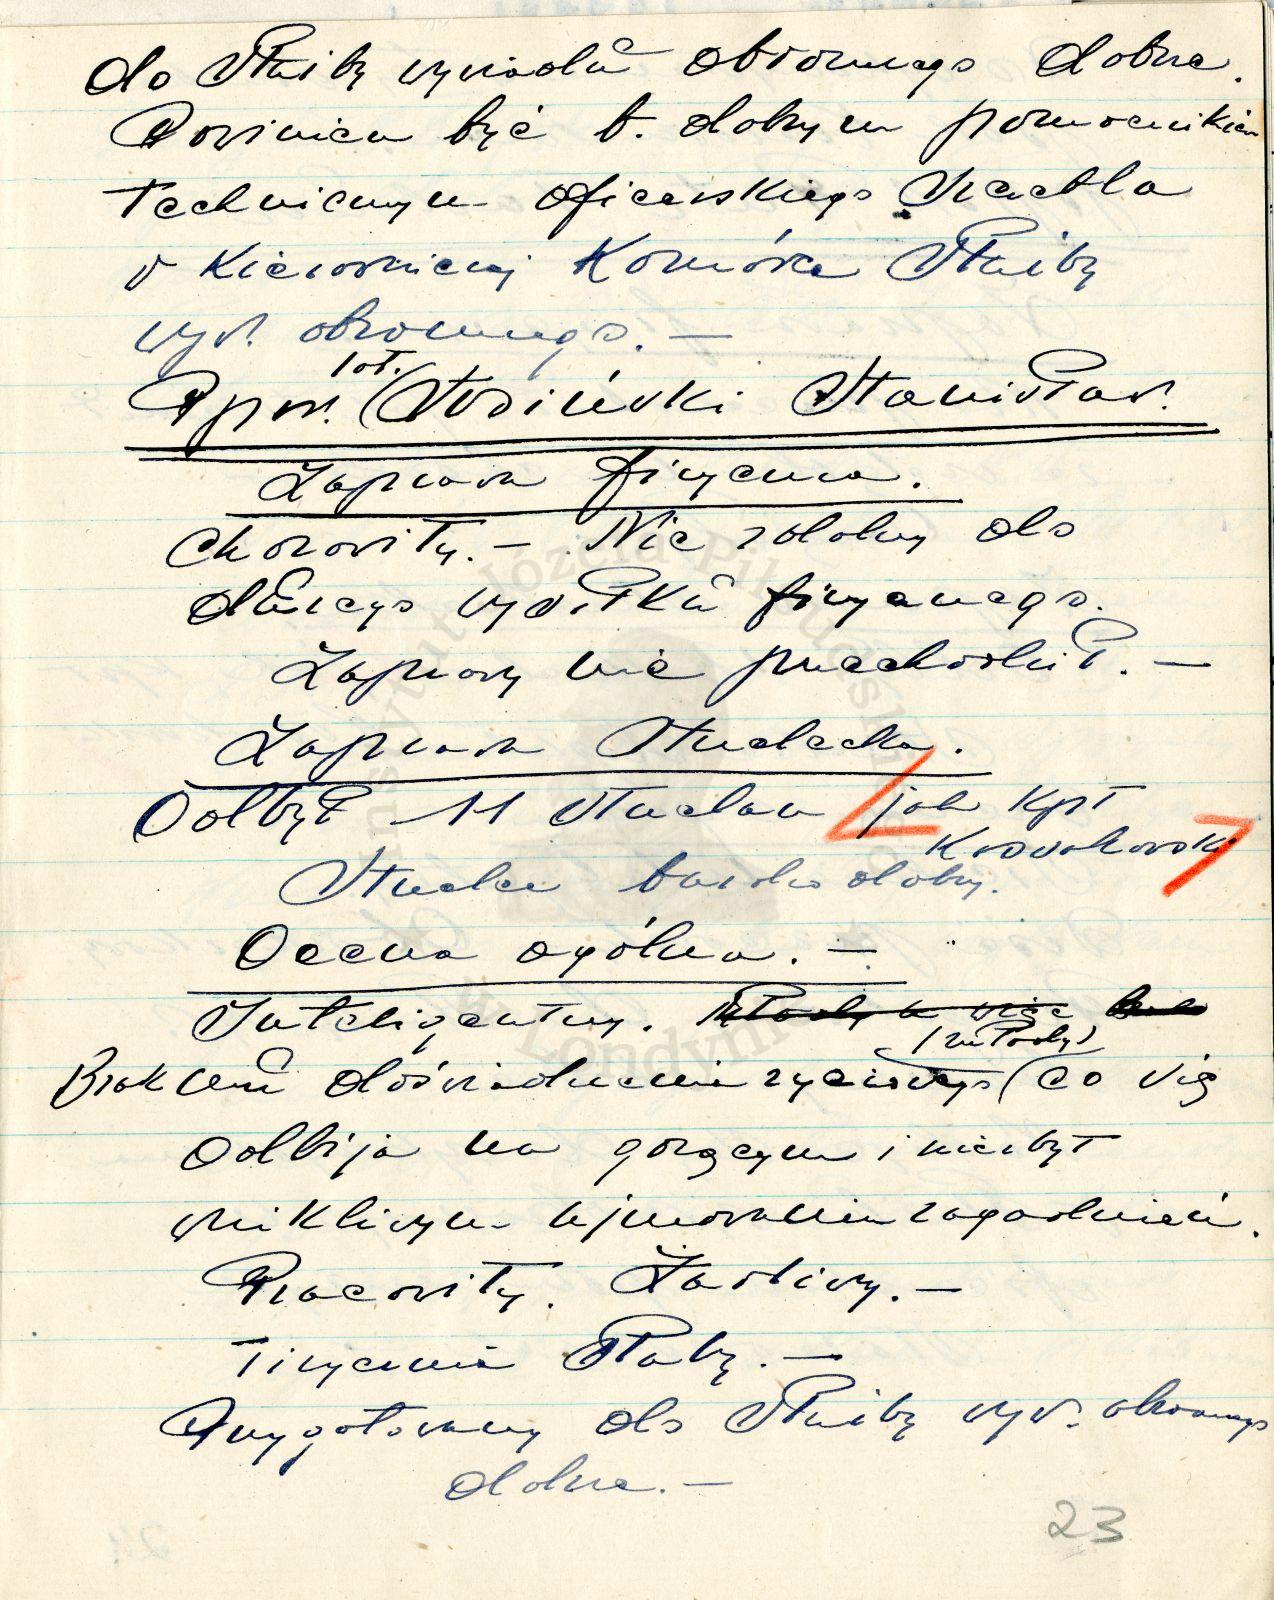 do służby wywiadu obronnego dobre.
Powinien być b. dobrym pomocnikiem
technicznym oficerskiego szczebla
w kierowniczej komórce służby
wyw. obronnego. —
Ppor. lot. Stanisław.
Zaprawa fizyczna.
Chorowity. — Nie zdolny do
dłuższego wysiłku fizycznego.
Zaprawy nie przechodził. —
Zaprawa strzelecka.
Odbył 11 strzelań jak kpt
Kowalkowski
Strzelec bardzo dobry.
Ocena ogólna. —
Inteligentny. Młody a więc
(młody)
Brak mu doświadczenia życiowego co się
odbija na gorącym i niezbyt
wnikliwym ujmowaniu zagadnień.
Pracowity. Żarliwy. —
Fizycznie słaby. —
Przygotowany do służby wyw. obronnego
dobrze. —
23
Instytut Józefa Piłsudskiego
Londyn